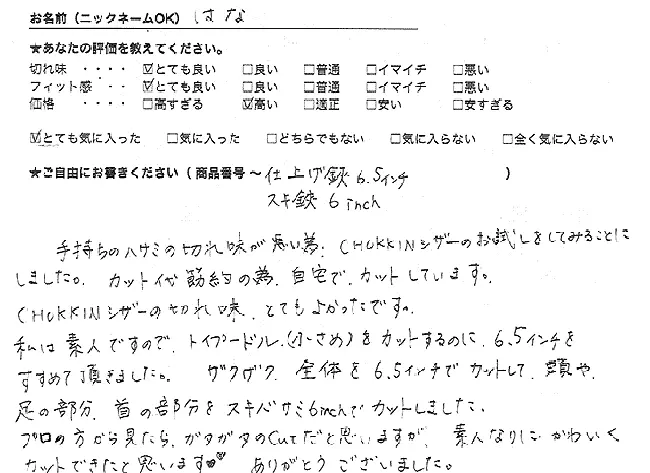 お名前（ニックネームOK） はな
★あなたの評価を教えてください。
切れ味 ・・・・ ☑とても良い □良い □普通 □イマイチ □悪い
フィット感 ・・ ☑とても良い □良い □普通 □イマイチ □悪い
価格 ・・・・ □高すぎる ☑高い □適正 □安い □安すぎる
☑とても気に入った □気に入った □どちらでもない □気に入らない □全く気に入らない
★ご自由にお書きください（ 商品番号 〜 仕上げ鋏 6.5インチ ）
スキ鋏 6 inch
手持ちのハサミの切れ味が悪い為、CHOKKINシザーのお試しをしてみることに
しました。 カット代 節約の為、自宅で、カットしています。
CHOKKINシザーの切れ味、とてもよかったです。
私は素人ですので、トイプードル（小さめ）をカットするのに、6.5インチを
すすめて頂きました。 ザクザク、全体を6.5インチでカットして、顔や、
足の部分、首の部分をスキバサミ6inchでカットしました。
プロの方から見たら、ガタガタのCutだと思いますが、素人なりにかわいく
カットできたと思います♥♥ ありがとうございました。